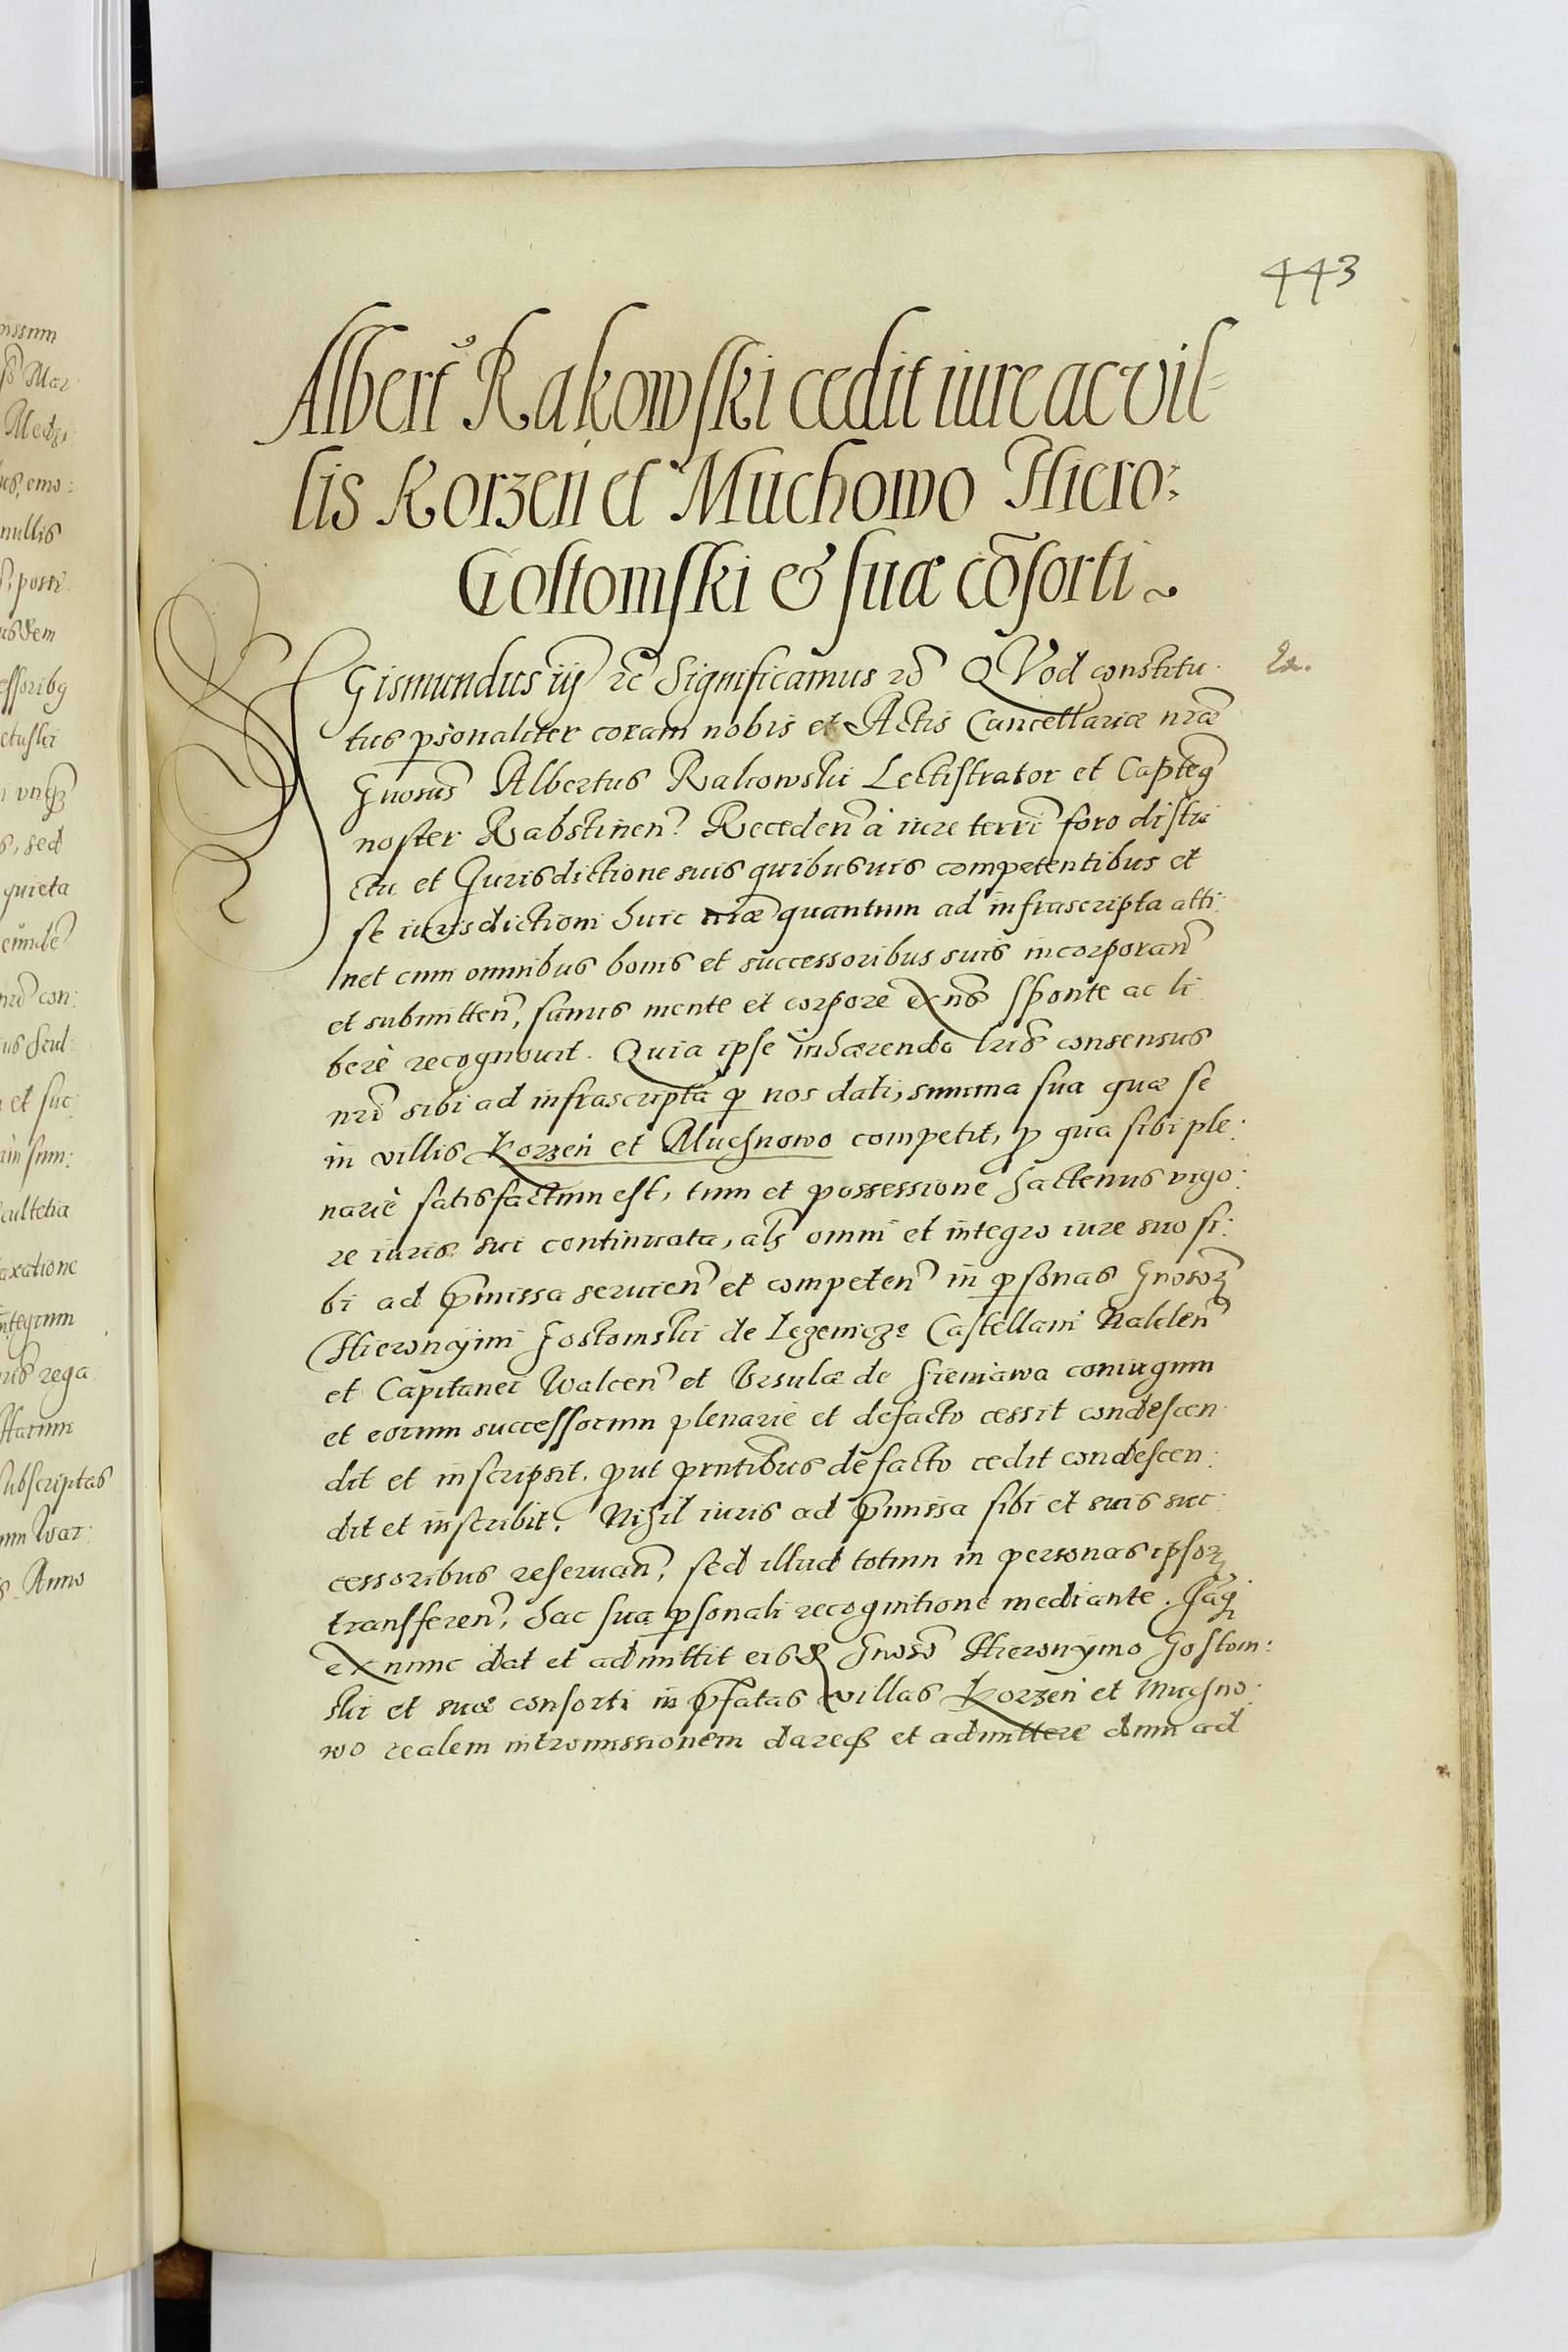 443
Albert9 Rakowski cedit iure ac vil-
lis Korzeń et Muchowo Hiero:
Gostomski & suæ cōsorti
SIGismundus iij etc Significamus etc QVod constitu
tus psonaliter coram nobis et Actis Cancellariæ nræ
Gnosus Albertus Rakowski Lectistrator et Capteq
noster Rabstinen. Receden à iure terri foro distri
ctu et Jurisdictione suis quibusuis competentibus et
se iurisdictioni huic nræ quantum ad infrascripta atti
net cum omnibus bonis et successoribus suis incorporan
et submitten, sanus mente et corpore exns sponte ac li
berè recognouit. Quia ipse inhærendo lris consensus
nri sibi ad infrascripta p nos dati, summa sua quæ se
in villis Korzeń et Muchnowo competit, p qua sibi ple:
nariè satisfactum est, tum et possessione hactenus vigo:
re iuris sui continuata, als omni et integro iure suo si:
bi ad pmissa seruien et competen in psonas Gnosor
Hieronÿmi Gostomski de Lezenicze Castellani Naklen
et Capitanei Walcen et Vrsulæ de Sieniawa coniugum
et eorum successorum plenariè et defacto cessit condescen
dit et inscripsit, put pntibus de facto cedit condescen:
dit et inscribit. Nihil iuris ad pmissa sibi et suis suc
cessoribus reseruan, sed illud totum in personas ipsor
transferen, hac sua psonali recognitione mediante. Jaq
ex nunc dat et admittit eisd Gnoso Hieronÿmo Gostom:
ski et suæ consorti in pfatas villas Korzeń et Muchno
wo realem intromissionem dareq et admittere dum ad
nullis
quieta
et suc:
axatione
subscriptas
Anno